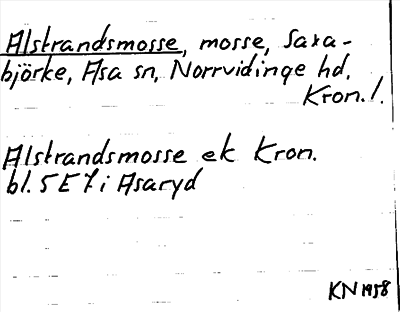 Alstrandsmosse, mosse, Saxa-
björke, Asa sn, Norrvidinge hd,
Kron. l.
Alstrandsmosse ek Kron.
bl. 5 E 7 i Asaryd
KN 1958